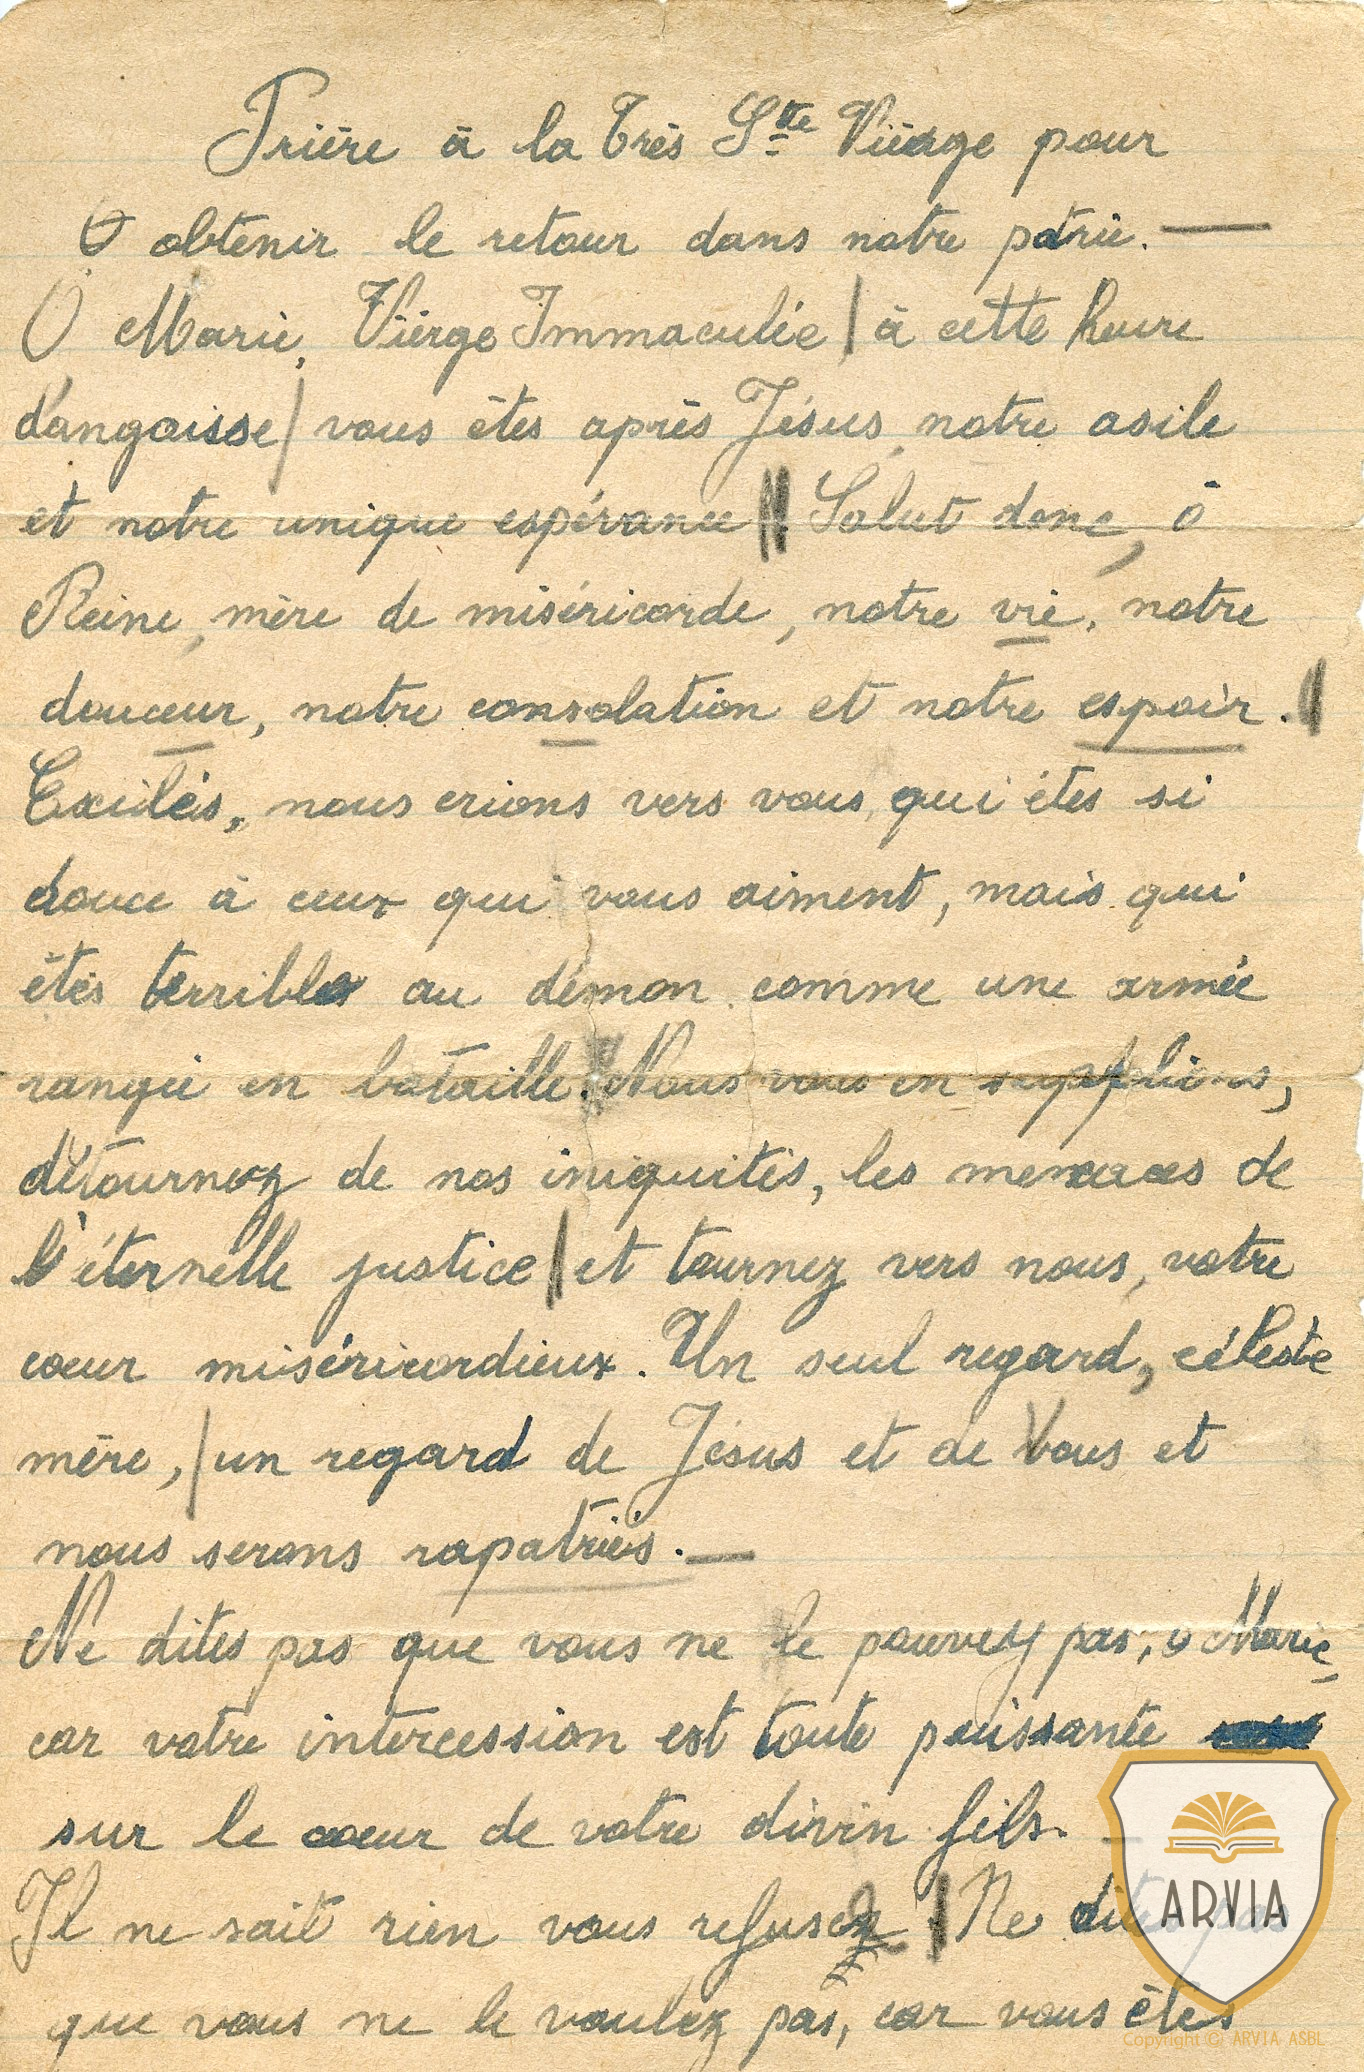 Prière à la Très Ste Vièrge pour
O obtenir le retour dans notre patrie. —
O Marie, Vièrge Immaculée / à cette heure
d'angoisse / vous êtes après Jésus, notre asile
et notre unique espérance //. Salut donc, ô
Reine, mère de miséricorde, notre vie, notre
douceur, notre consolation et notre espoir. //
Exilés, nous crions vers vous, qui êtes si
douce à ceux qui vous aiment, mais qui
êtes terrible au démon comme une armée
rangée en bataille. Nous vous en supplions,
détournez de nos iniquités, les menaces de
l'éternelle justice / et tournez vers nous, votre
coeur miséricordieux. Un seul regard, céleste
mère, / un regard de Jésus et de Vous et
nous serons rapatriés. —
Ne dites pas que vous ne le pouvez pas, ô Marie,
car votre intercession est toute puissante
sur le coeur de votre divin fils. —
Il ne sait rien vous refusez. / Ne dites pas
que vous ne le voulez pas, car vous êtes
ARVIA
Copyright © ARVIA ASBL